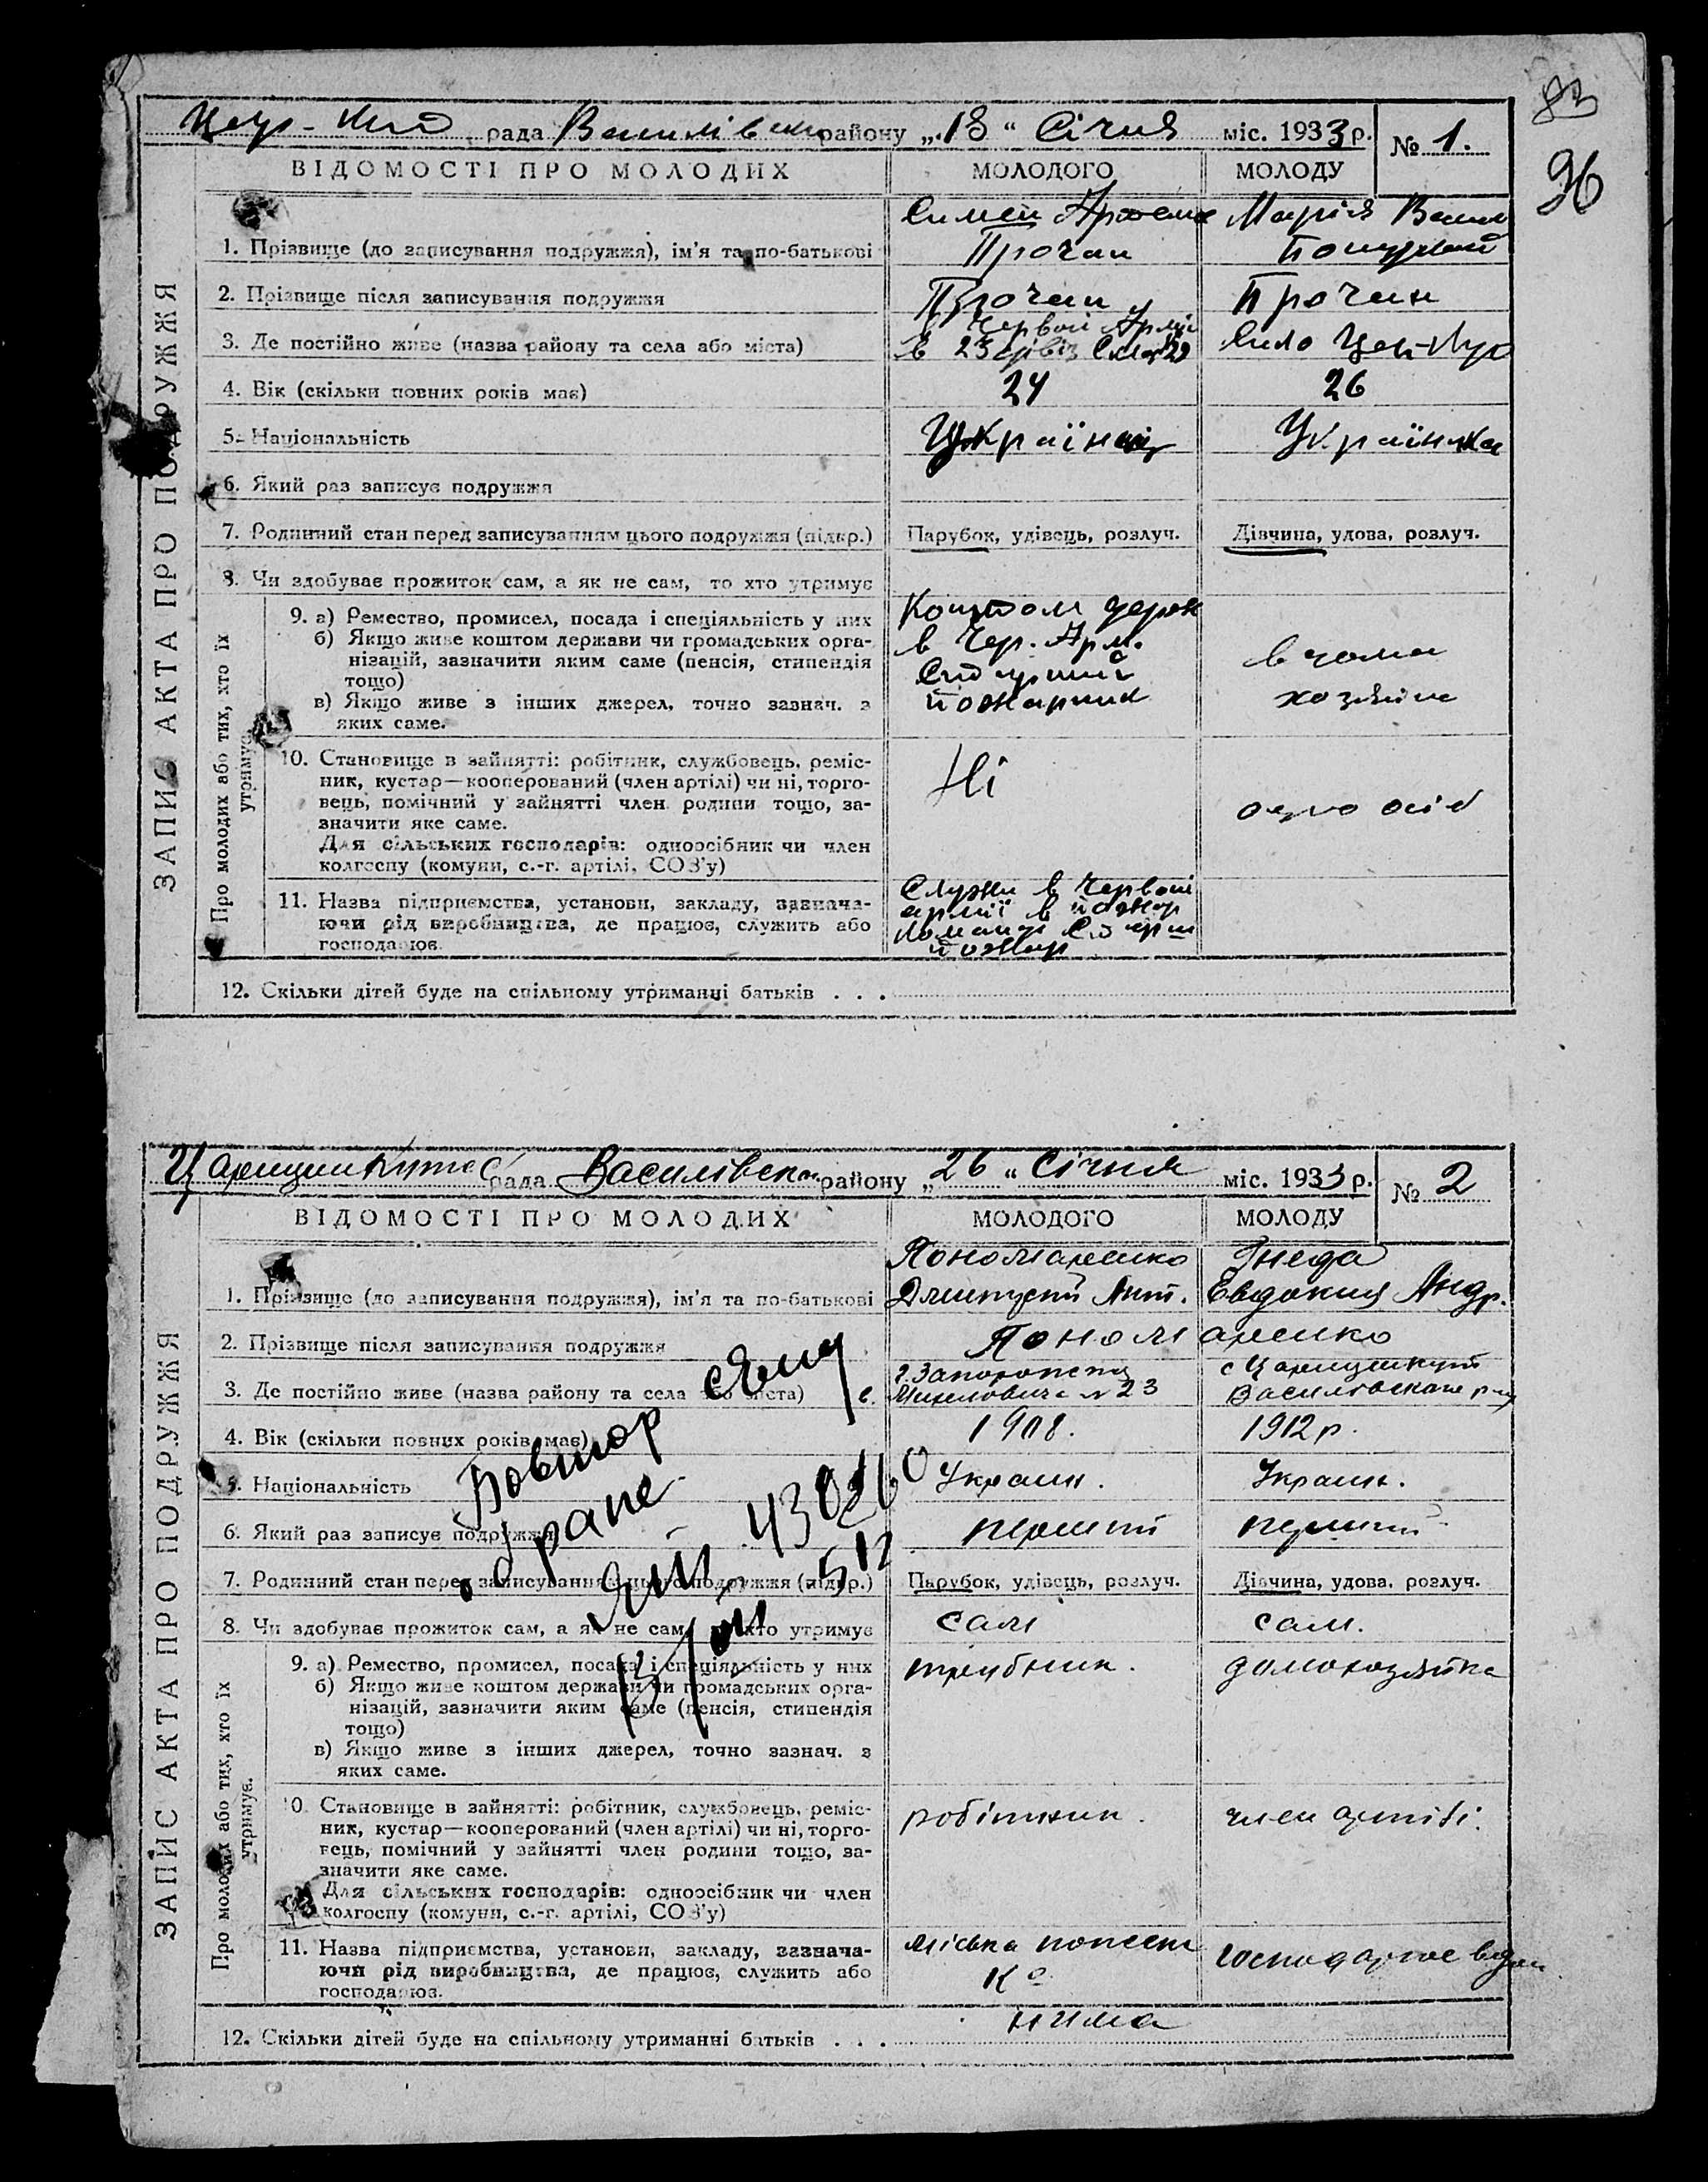 83
96
рада Василівськ району „18“ Січня міс. 1933 р. № 1.
ВІДОМОСТІ ПРО МОЛОДИХ МОЛОДОГО МОЛОДУ
ЗАПИС АКТА ПРО ПОДРУЖЖЯ
Марія
1. Прізвище (до записування подружжя), ім'я та по-батькові Прочан
2. Прізвище після записування подружжя Прочан Прочан
в Червон Армії
3. Де постійно живе (назва району та села або міста) в 23 Село
4. Вік (скільки повних років має) 24 26
5. Національність Українец Українка
6. Який раз записує подружжя
7. Родинний стан перед записуванням цього подружжя (підкр.) Парубок, удівець, розлуч. Дівчина, удова, розлуч.
8. Чи здобуває прожиток сам, а як не сам, то хто утримує
Про молодих або тих, хто їх утримує.
9. а) Ремество, промисел, посада і спеціяльність у них Коштом держ
б) Якщо живе коштом держави чи громадських орга- в Чер. Арм.
нізацій, зазначити яким саме (пенсія, стипендія в дома
тощо)
в) Якщо живе з інших джерел, точно зазнач. з пожарник
яких саме.
10. Становище в зайнятті: робітник, службовець, реміс- Ні
ник, кустар—кооперований (член артілі) чи ні, торго-
вець, помічний у зайнятті член родини тощо, за- одно осіб
значити яке саме.
Для сільських господарів: одноосібник чи член
колгоспу (комуни, с.-г. артілі, СОЗ'у)
Служи в Червоні
11. Назва підприємства, установи, закладу, зазнача- армії в пожар
ючи рід виробництва, де працює, служить або команді
господарює. пожар
12. Скільки дітей буде на спільному утриманні батьків . . .
Царицин Кут рада Василівськ району „26“ Січня міс. 1933 р. № 2
ВІДОМОСТІ ПРО МОЛОДИХ МОЛОДОГО МОЛОДУ
ЗАПИС АКТА ПРО ПОДРУЖЖЯ
Пономаренко Гнеда
1. Прізвище (до записування подружжя), ім'я та по-батькові Дмитрий Ант. Евдокия Андр.
2. Прізвище після записування подружжя Пономаренко
3. Де постійно живе (назва району та села або міста) №23
4. Вік (скільки повних років має) 1908. 1912 р.
5. Національність Украин. Украин.
6. Який раз записує подружжя перший перший
7. Родинний стан перед записуванням цього подружжя (підкр.) Парубок, удівець, розлуч. Дівчина, удова, розлуч.
8. Чи здобуває прожиток сам, а як не сам, то хто утримує сам сам.
Про молодих або тих, хто їх утримує.
9. а) Ремество, промисел, посада і спеціяльність у них домохозяйка
б) Якщо живе коштом держави чи громадських орга-
нізацій, зазначити яким саме (пенсія, стипендія
тощо)
в) Якщо живе з інших джерел, точно зазнач. з
яких саме.
10. Становище в зайнятті: робітник, службовець, реміс- робітник. член артілі.
ник, кустар—кооперований (член артілі) чи ні, торго-
вець, помічний у зайнятті член родини тощо, за-
значити яке саме.
Для сільських господарів: одноосібник чи член
колгоспу (комуни, с.-г. артілі, СОЗ'у)
11. Назва підприємства, установи, закладу, зазнача- міська господарює в дом
ючи рід виробництва, де працює, служить або
господарює.
12. Скільки дітей буде на спільному утриманні батьків . . . нима